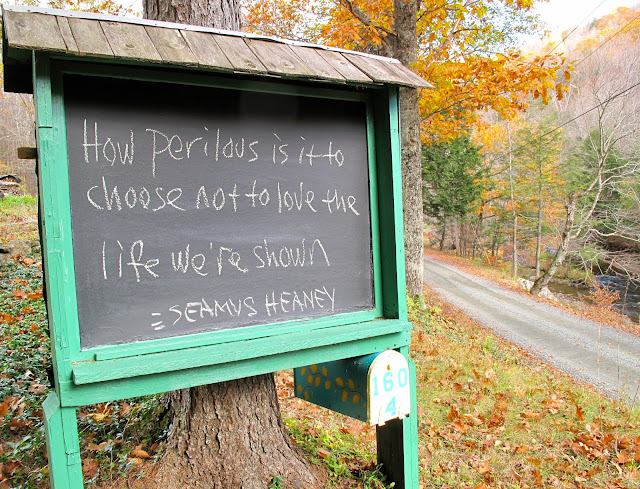 How perilous is it to
choose not to love the
life we're shown
= SEAMUS HEANEY
160
4